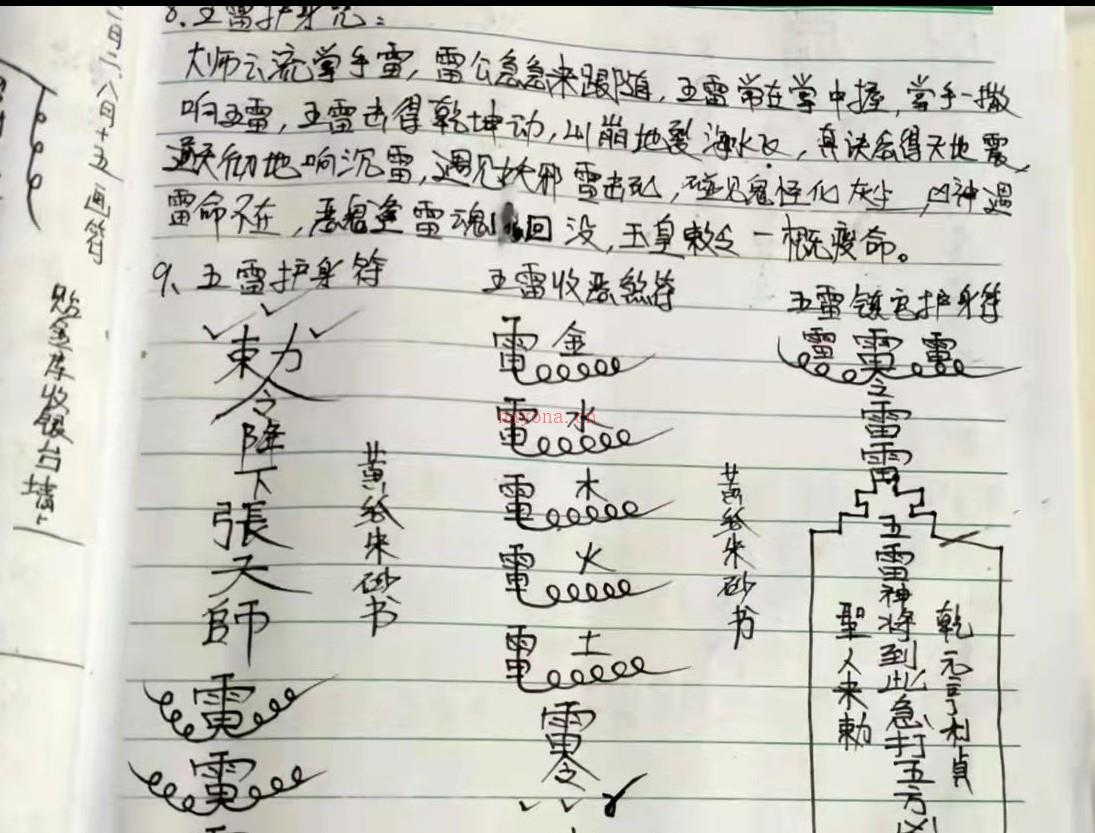 8.五雷护身咒：
大师云流掌手雷，雷公急急来跟随，五雷常在掌中握，掌手一撒
响五雷，五雷击得乾坤动，山崩地裂海水飞，真诀念得天地震，
通天彻地响沉雷，遇见妖邪雷击死，碰见鬼怪化灰尘，凶神遇
雷命不在，恶鬼逢雷魂 回没，玉皇敕令一概废命。
9、五雷护身符
五雷收恶煞符
五雷镇宅护身符
敕令降下張天師
電
電
黄纸朱砂书
電金
電水
電木
電火
電土
電令
黄纸朱砂书
雷電電
之
雷
雷
五雷神将到此急打五方凶
乾元亨利貞
聖人来勅
月二八月十五画符
贴金库收银台墙上